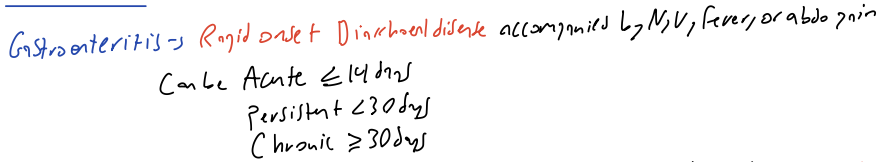 Gastroenteritis → Rapid onset Diarrhoeal disease accompanied by N, V, fever, or abdo pain
Can be Acute ≤ 14 days
Persistent < 30 days
Chronic ≥ 30 days